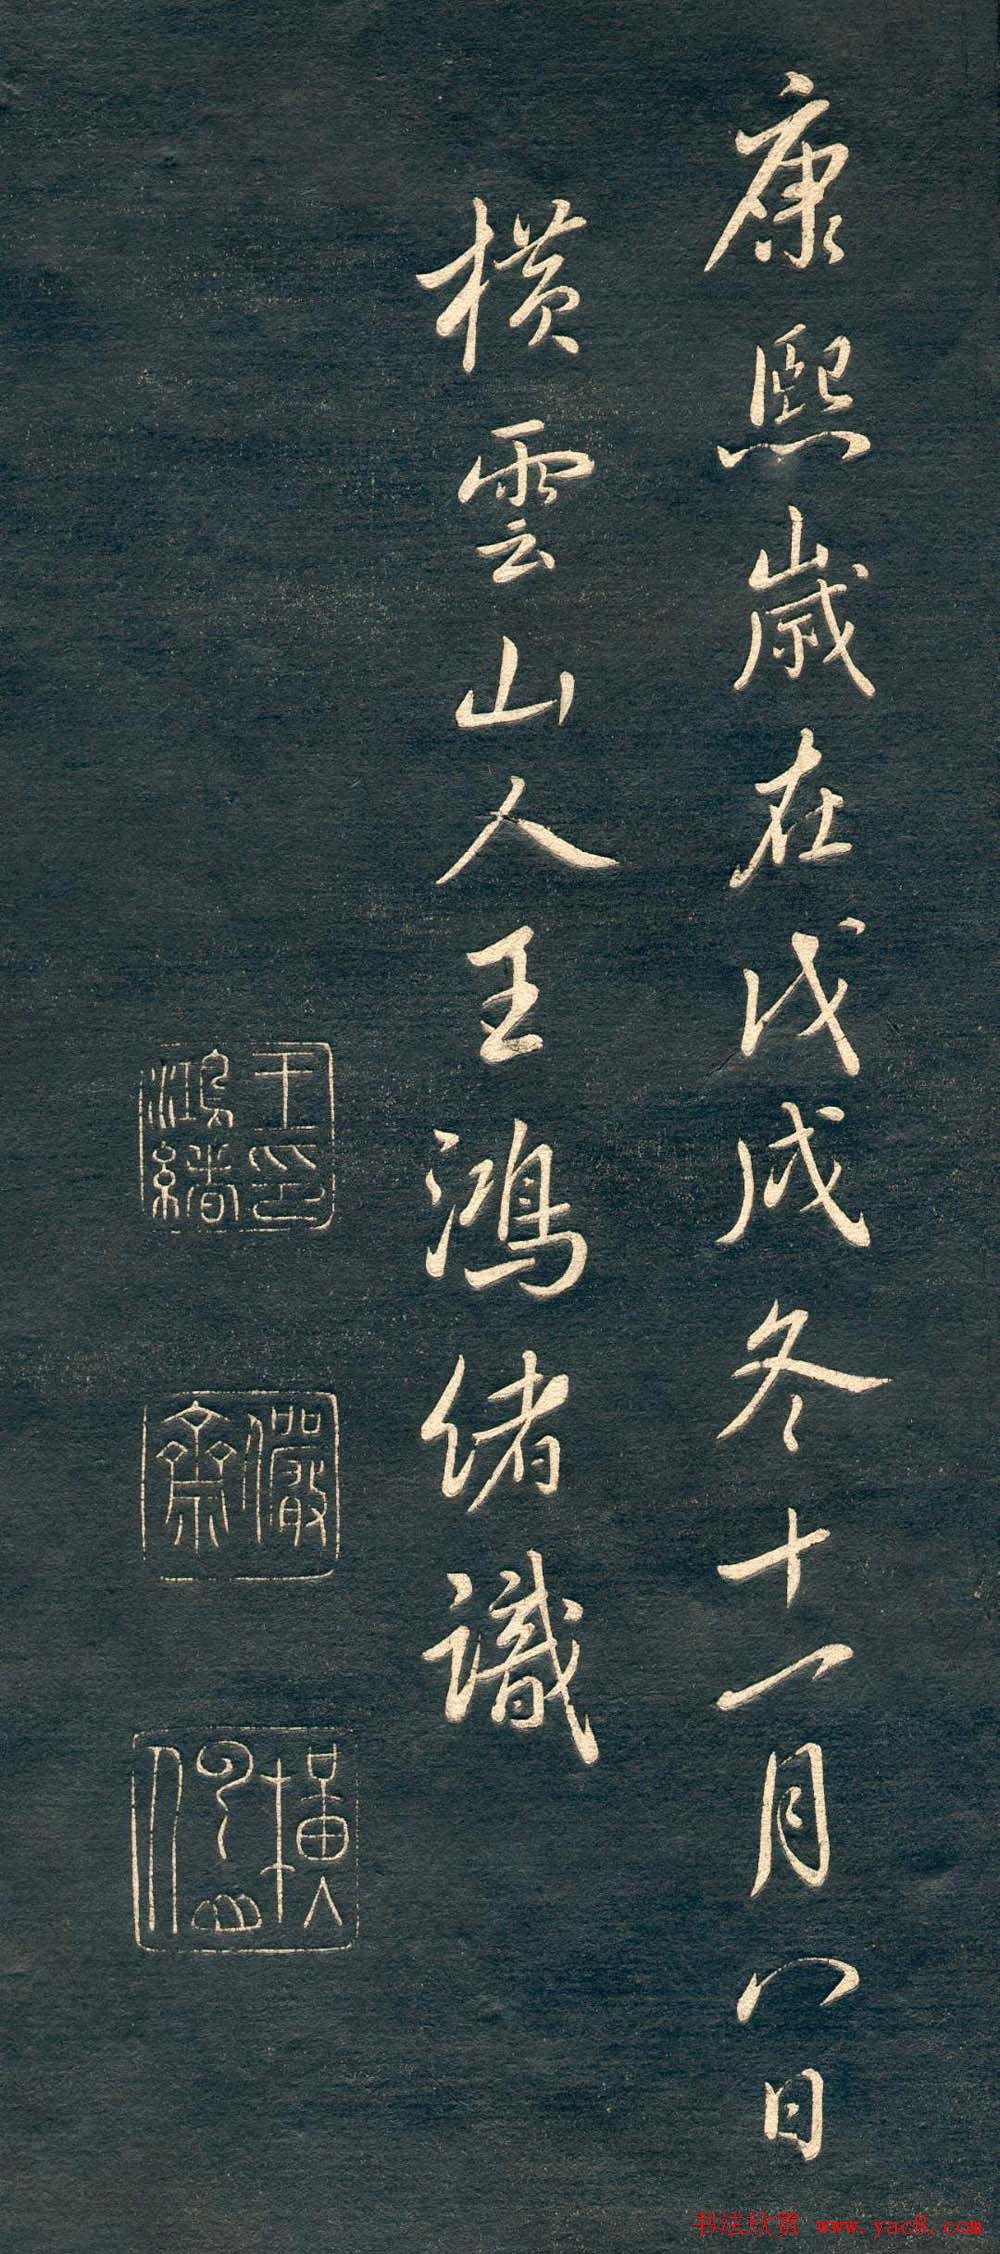 康熙歲在戊戌冬十一月八日
橫雲山人王鴻緒識
王印
鴻緒
儼
齋
橫
雲山
人
书法欣赏 www.yac8.com